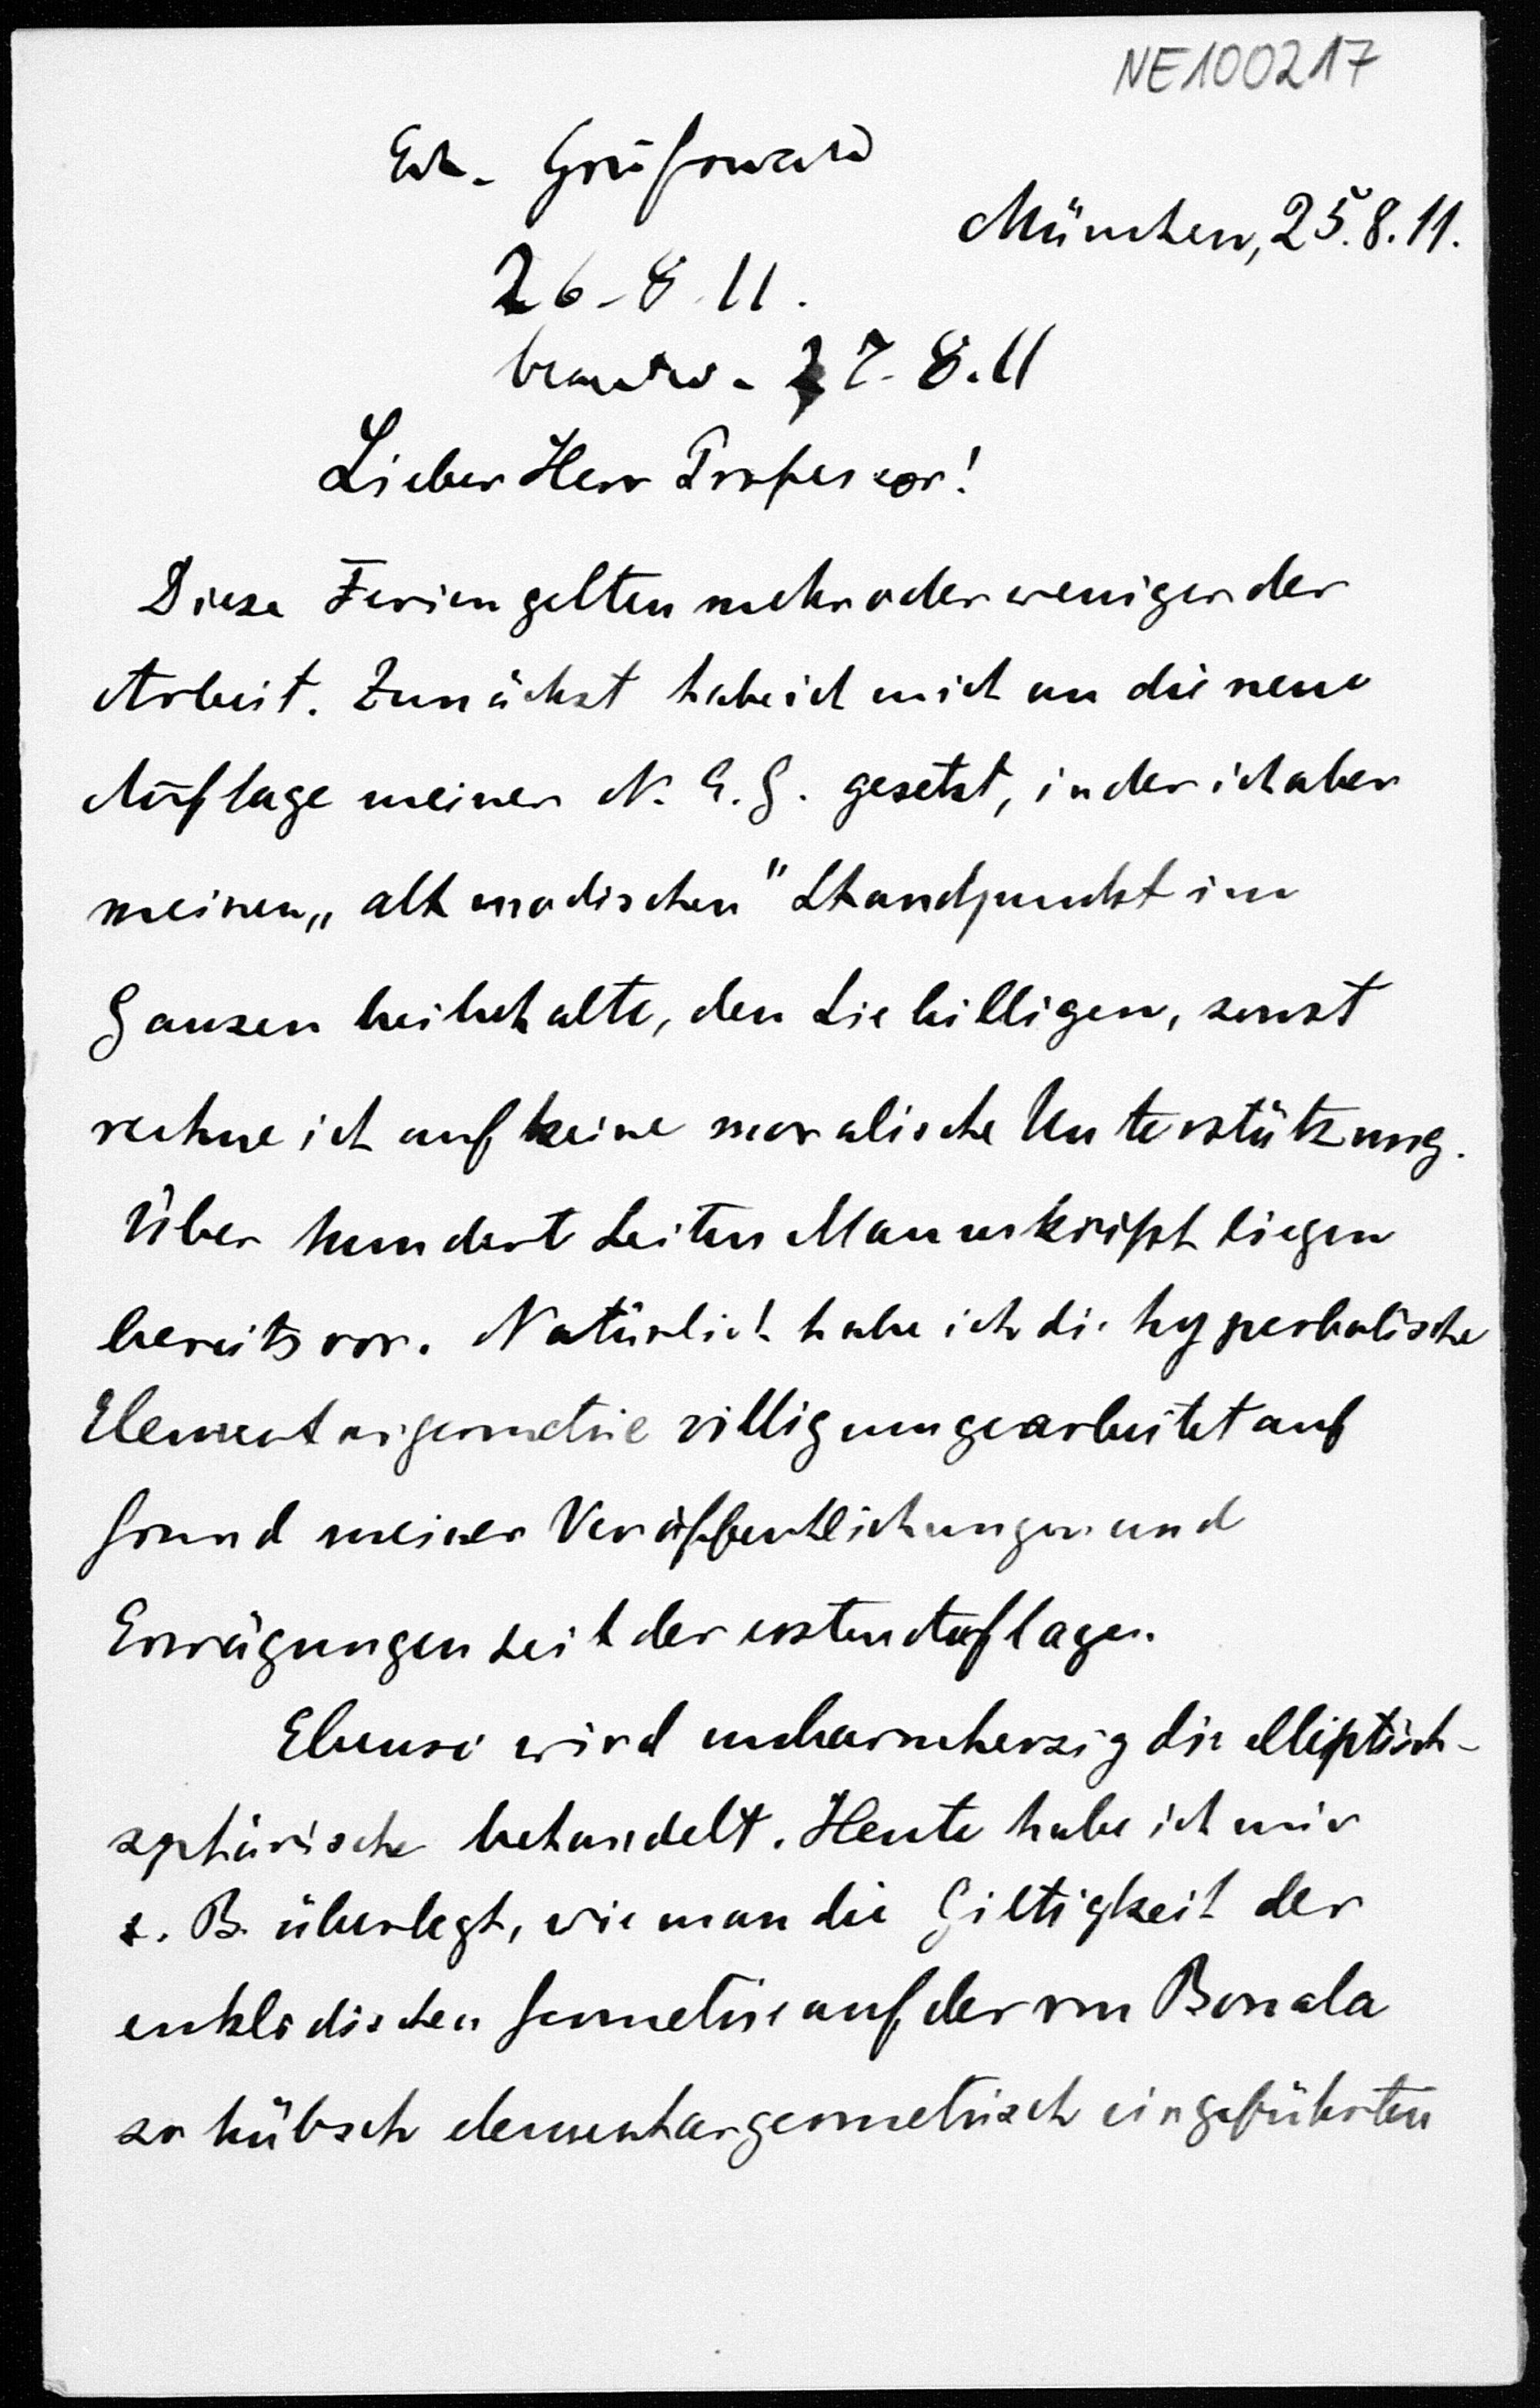 NE100217
Erh. Greifswald
München, 25.8.11.
26-8 11.
beantw. 27-8.11
Lieber Herr Professor!
Diese Ferien gelten mehr oder weniger der
Arbeit. Zunächst habe ich mich an die neue
Auflage meiner N. E. G. gesetzt, in der ich aber
meinen „altmodischen" Standpunkt im
Ganzen beibehalte, den Sie billigen, sonst
rechne ich auf keine moralische Unterstützung.
Über hundert Seiten Manuskript liegen
bereits vor. Natürlich habe ich die hyperbolische
Elementargeometrie völlig umgearbeitet auf
Grund meiner Veröffentlichungen und
Erwägungen seit der ersten Auflage.
Ebenso wird unbarmherzig die elliptisch-
sphärische behandelt. Heute habe ich mir
z. B. überlegt, wie man die Giltigkeit der
euklidischen Geometrie auf der von Bonola
so hübsch elementargeometrisch eingeführten